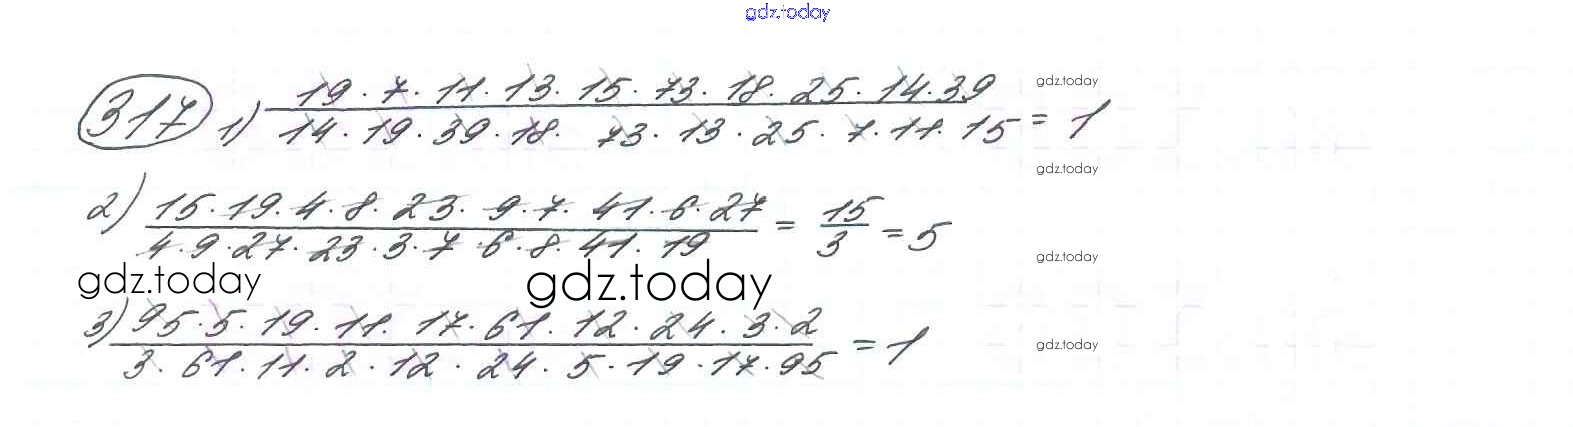 gdz.today
317 1) 19 · 7 · 11 · 13 · 15 · 73 · 18 · 25 · 14 · 39 / 14 · 19 · 39 · 18 · 73 · 13 · 25 · 7 · 11 · 15 = 1
gdz.today
gdz.today
2) 15 · 19 · 4 · 8 · 23 · 9 · 7 · 41 · 6 · 27 / 4 · 9 · 27 · 23 · 3 · 7 · 6 · 8 · 41 · 19 = 15 / 3 = 5
gdz.today
gdz.today gdz.today
3) 95 · 5 · 19 · 11 · 17 · 61 · 12 · 24 · 3 · 2 / 3 · 61 · 11 · 2 · 12 · 24 · 5 · 19 · 17 · 95 = 1
gdz.today